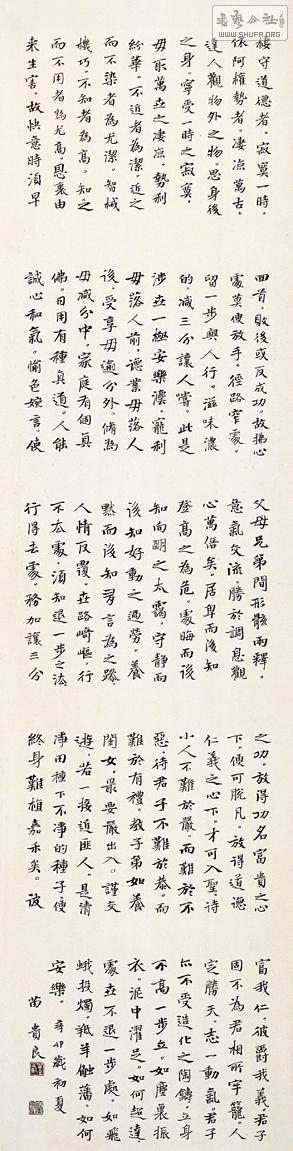 書藝公社
WWW.SHUFA.ORG
棲守道德者。寂寞一時。
依阿權勢者。凄凉萬古。
達人觀物外之物。思身後
之身。寧受一時之寂寞。
毋取萬古之凄凉。勢利
紛華。不近者為潔。近之
而不染者為尤潔。智械
機巧。不知者為高。知之
而不用者為尤高。恩裏由
来生害。故快意時須早
回首。敗後或反成功。故拂心
處莫便放手。徑路窄處。
留一步與人行。滋味濃
的减三分讓人嘗。此是
涉世一極安樂法。寵利
毋落人前。德業毋落人
後。受享毋逾分外。脩為
毋减分中。家庭有個真
佛。日用有種真道。人能
誠心和氣。愉色婉言。使
父母兄弟間形骸兩釋。
意氣交流。勝於調息觀
心萬倍矣。居卑而後知
登高之為危。處晦而後
知向明之太露。守静而
後知好動之過勞。養
默而後知多言為之躁。
人情反覆。世路崎嶇。行
不去處。須知退一步之法。
行得去處。務加讓三分
之功。放得功名富貴之心
下。便可脱凡。放得道德
仁義之心下。才可入聖。待
小人不難於嚴。而難於不
惡。待君子不難於恭。而
難於有禮。教子弟如養
閨女。最要嚴出入。謹交
遊。若一接近匪人。是清
净田種下不净的種子。便
終身難植嘉禾矣。彼
富我仁。彼爵我義。君子
固不為君相所牢籠。人
定勝天。志一動氣。君子
亦不受造化之陶鑄。立身
不高一步立。如塵裏振
衣。泥中濯足。如何超達。
處世不退一步處。如飛
蛾投燭。羝羊觸藩。如何
安樂。辛卯歲初夏
苗貴良